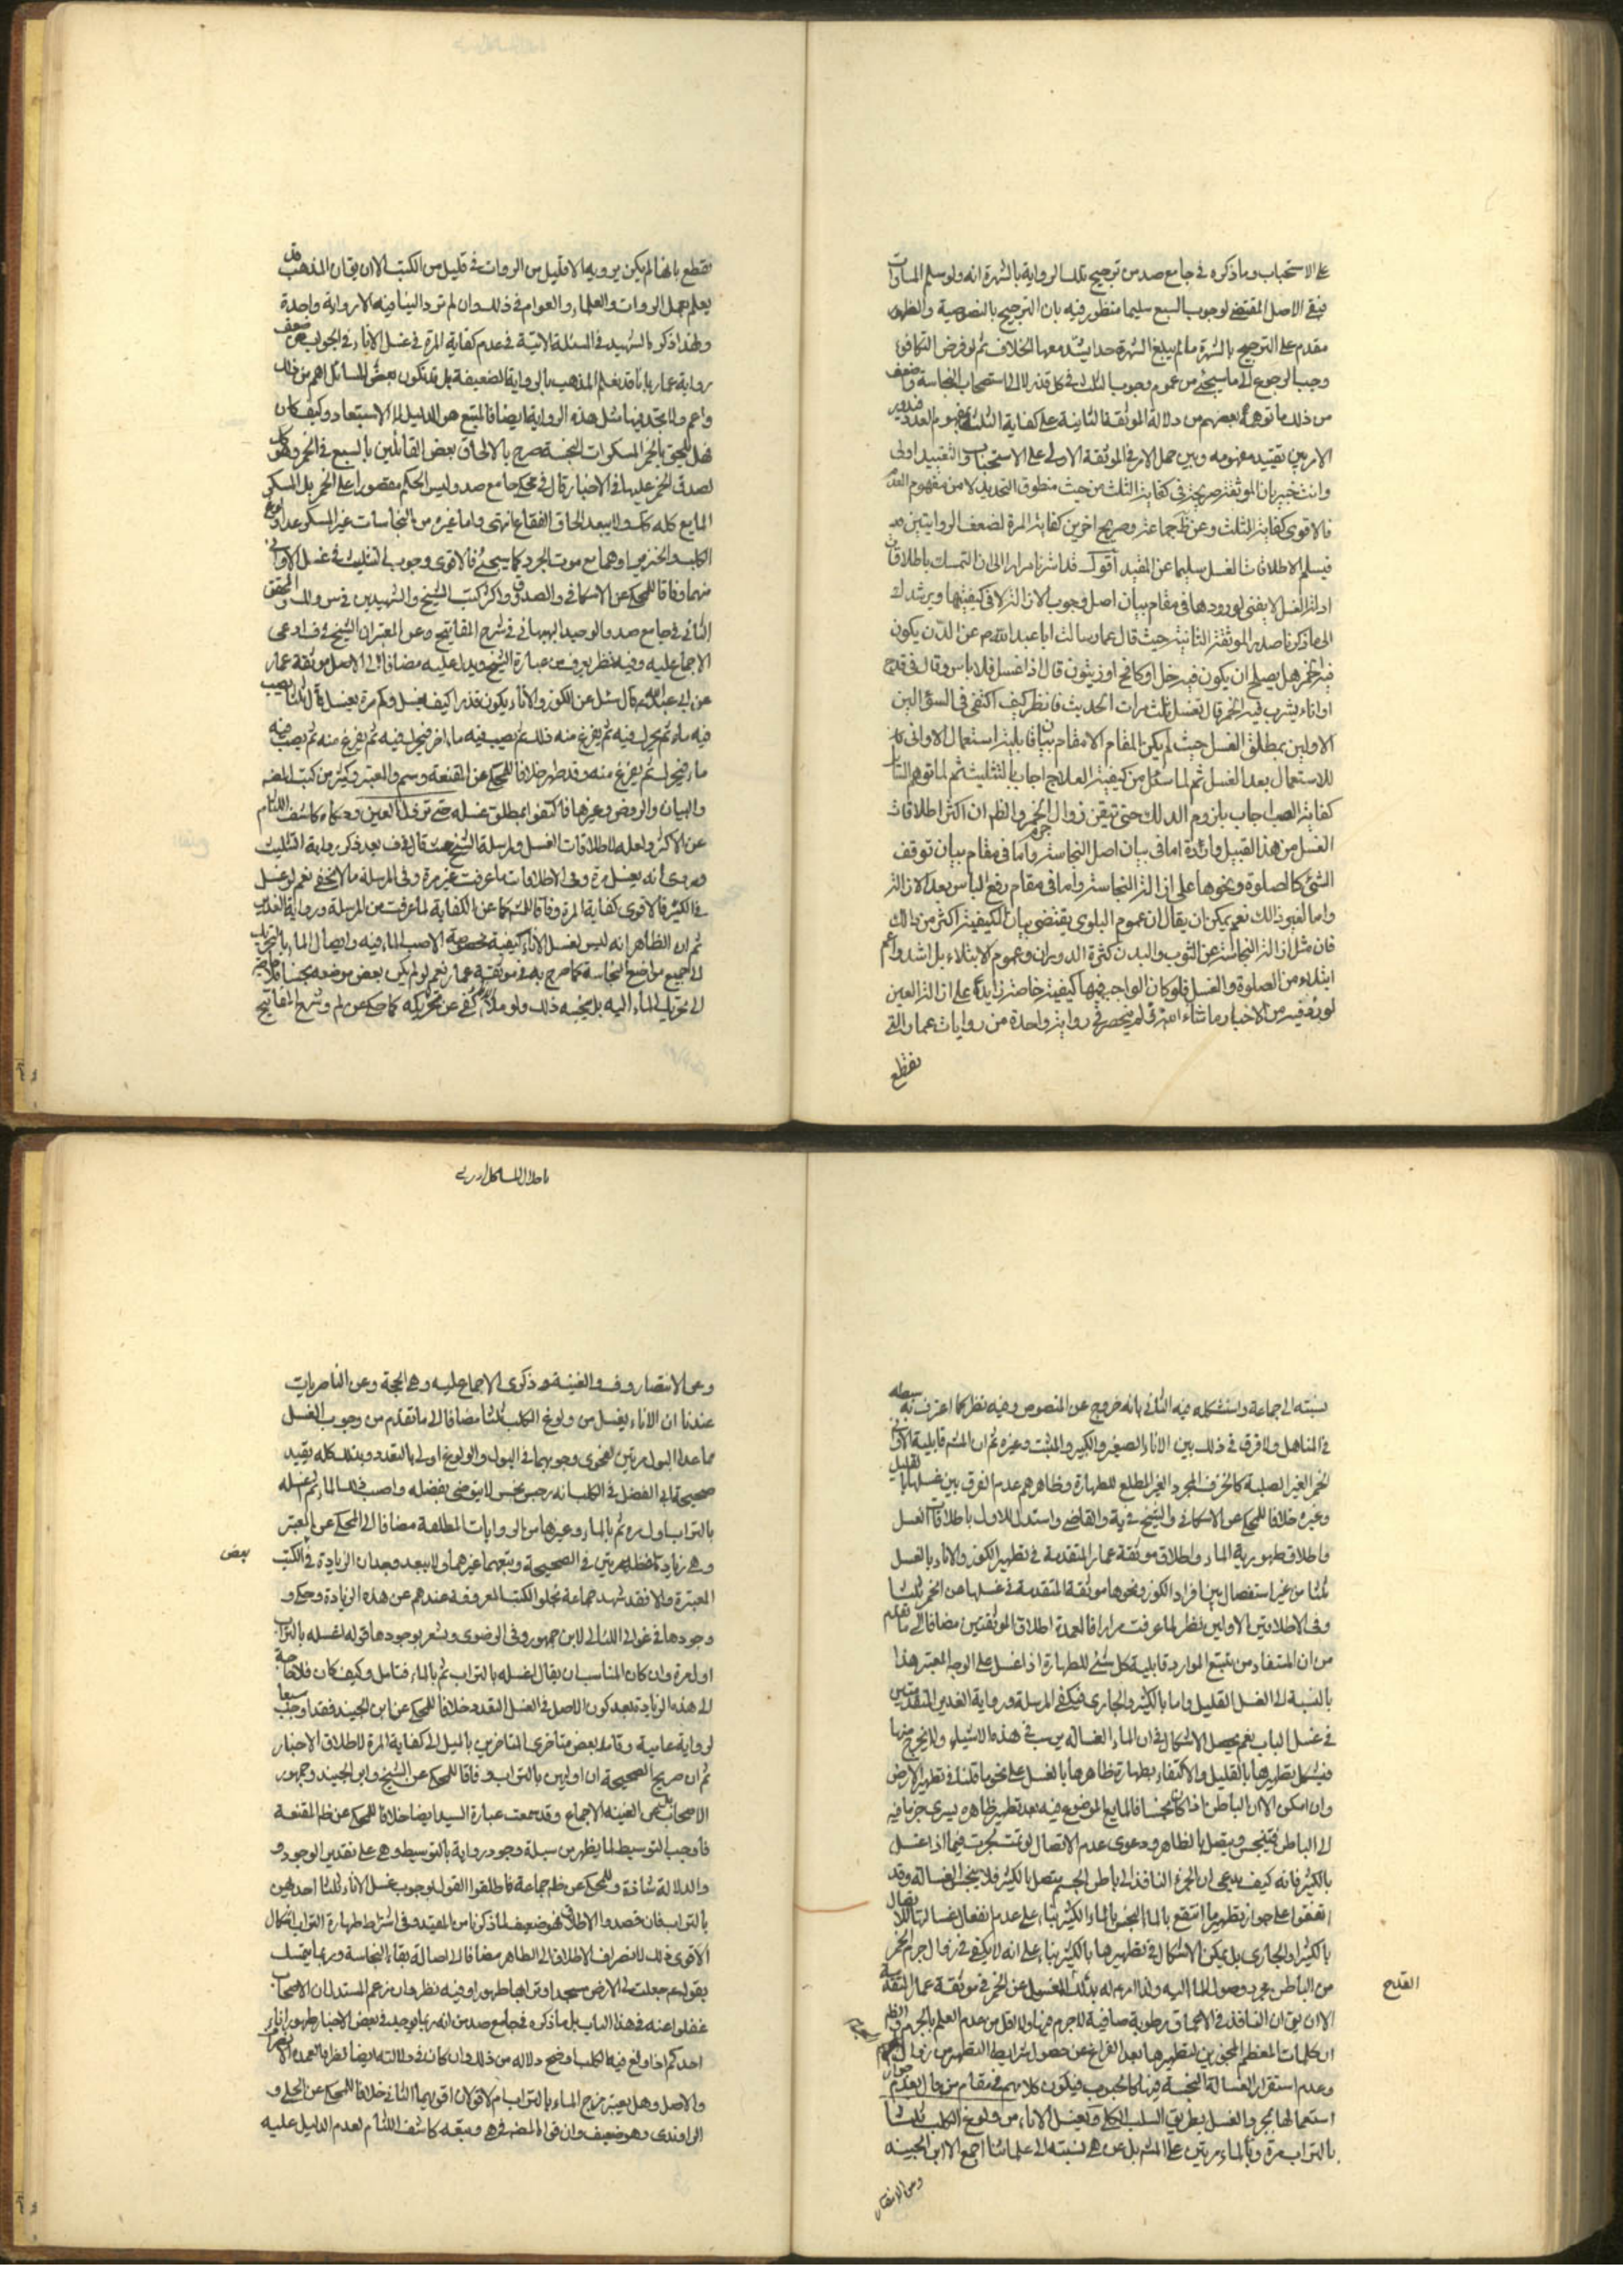 على الاستحباب وما ذكره في جامع صد من ترجيح تلك الرواية بالشهرة انه ولو سلم المساوات
فيبقى الاصل المقتضى لوجوب السبع سليما منظور فيه بان الترجيح بالنصوصية والظهور
مقدم على الترجيح بالشهرة ما لم يبلغ الشهرة حدا يشذ معها الخلاف ثم لو فرض التكافؤ
وجب الرجوع الى ما سيجئ من عموم وجوب الثلث في كل قذر لا الى استصحاب النجاسة واضعف
من ذلك ما توهمه بعضهم من دلالة الموثقة الثانية على كفاية الثلثة بمفهوم العدد فيدور
الامر بين تقييد مفهومه وبين حمل الامر في الموثقة الاولى على الاستحباب والتقييد اولى
وانت خبير بان الموثقة صريحة في كفاية الثلث من حيث منطوق التحديد لا من مفهوم العدد
فالاقوى كفاية الثلث وعن جماعة وصريح اخرين كفاية المرة لضعف الروايتين
فيسلم الاطلاقات الغسل سليما عن المقيد اقول قد اشرنا مرارا الى ان التمسك باطلاقات
ادلة الغسل لا يغني لورودها في مقام بيان اصل وجوب الازالة لا في كيفيتها ويرشدك
الى ما ذكرنا صدر الموثقة الثانية حيث قال عمار سالت ابا عبد الله ع عن الدن يكون
فيه الخمر هل يصلح ان يكون فيه خل او كامخ او زيتون قال اذا غسل فلا باس وقال في قدح
او اناء يشرب فيه الخمر قال تغسله ثلث مرات الحديث فانظر كيف اكتفى في السؤالين
الاولين بمطلق الغسل حيث لم يكن المقام الا مقام بيان قابلية استعمال الاواني
للاستعمال بعد الغسل ثم لما سئل عن كيفية العلاج اجاب بالتثليث ثم لما توهم السائل
كفاية الصب اجاب بلزوم الدلك حتى تيقن زوال جرم الخمر والظ ان اكثر اطلاقات
الغسل من هذا القبيل واردة اما في بيان اصل النجاسة واما في مقام بيان توقف
الشئ كالصلوة ونحوها على ازالة النجاسة واما في مقام رفع الباس بعد الازالة
واما لغير ذلك نعم يمكن ان يقال ان عموم البلوى يقتضى بيان الكيفية اكثر من ذلك
فان مثل ازالة النجاسة عن الثوب والبدن كثرة الدوران وعموم الابتلاء بل اشد واعم
ابتلاء من الصلوة والغسل فلو كان الواجب فيها كيفية خاصة زايدة على ازالة العين
لورد فيه من الاخبار ما شاء الله ولم ينحصر في رواية واحدة من روايات عمار التي
نقطع
نقطع بانها لم يكن يرويها الا قليل من الروات في قليل من الكتب الا ان يقال ان المذهب قد
يعلم بعمل الروات والعلماء والعوام في ذلك وان لم ترد الينا فيه الا رواية واحدة
ولهذا ذكر الشهيد في المسئلة الاتية في عدم كفاية المرة في غسل الاناء في الجواب عن ضعف
رواية عمار بانا قد نعلم المذهب بالرواية الضعيفة بل قد تكون بعض المسائل اهم من ذلك
واعم ولا تجد فيها مثل هذه الرواية ايضا فالمتبع هو الدليل لا الاستبعاد وكيف كان
فهل يلحق بالخمر المسكرات النجسة صرح بالالحاق بعض القائلين بالسبع في الخمر وهو
لصدق الخمر عليها في الاخبار قال في محكي جامع صد وليس الحكم مقصورا على الخمر بل المسكر
المايع كله كك ولا يبعد الحاق الفقاع انتهى واما غيره من النجاسات غير المسكر عدا ولوغ
الكلب والخنزير او هما مع موت الجرذ كما سيجئ فالاقوى وجوب التثليث في غسل الاواني
منها وفاقا للمحكي عن الاسكافي والصدوق واكثر كتب الشيخ والشهيدين في س ولك والمحقق
الثاني في جامع صد والوحيد البهبهاني في شرح المفاتيح وعن المعتبر ان الشيخ في ف ادعى
الاجماع عليه وفيه نظر يعرف من عبارة الشيخ ويدل عليه مضافا الى الاصل موثقة عمار
عن ابي عبد الله ع قال سئل عن الكوز والاناء يكون قذرا كيف يغسل وكم مرة يغسل قال ثلثا يصب
فيه ماء ثم يحرك فيه ثم يفرغ منه ذلك ثم يصب فيه ماء اخر فيحرك فيه ثم يفرغ منه ثم يصب فيه
ماء فيحرك ثم يفرغ منه وقد طهر خلافا للمحكي عن المقنعة وسم والمعتبر وكثير من كتب
والبيان والروض وغيرها فاكتفوا بمطلق غسله حتى تزول العين وحكاه كاشف اللثام
عن الاكثر ولعله لاطلاقات الغسل ولمرسلة الشيخ حيث قال في ف بعد ذكر رواية التثليث
وروى انه يغسل مرة وفي الاطلاقات ما عرفت غير مرة وفي المرسلة ما لا يخفى نعم لو غسل
في الكثير فالاقوى كفاية المرة وفاقا للمحكي عن الكفاية لما عرفت من المرسلة ورواية الغدير
ثم ان الظاهر انه ليس لغسل الاناء كيفية مخصوصة الا صب الماء فيه وايصال الماء بالتحريك
الى جميع مواضع النجاسة كما صرح به في موثقة عمار نعم لو لم يكن بعض موضعه نجسا فلا حاجة
الى تحريك الماء اليه بل يجنبه ذلك ولو ملأه كفى عن تحريكه كما حكي عن لم وشرح المفاتيح
نسبته الى جماعة واستشكله فيه الثاني بانه خروج عن المنصوص وفيه نظر كما اعترف به سبطه
في المناهل ولا فرق في ذلك بين الاناء الصغير والكبير والمثبت وغيره ثم ان المش قابلية الاواني
الخمر الغير الصلبة كالخزف المجرد الغير المطلي للطهارة وظاهرهم عدم الفرق بين غسلها بالقليل
وغيره خلافا للمحكي عن الاسكافي والشيخ في ية والقاضي واستدل للاول باطلاقات الغسل
واطلاق طهورية الماء واطلاق موثقة عمار المتقدمة في تطهير الكوز والاناء بالغسل
ثلثا من غير استفصال بين افراد الكوز ونحوها موثقة المتقدمة في غسلها من الخمر ثلثا
وفي الاطلاقين الاولين نظر لما عرفت مرارا فالعمدة اطلاق الموثقتين مضافا الى ما تقدم
من ان المستفاد من تتبع الموارد قابلية كل شئ للطهارة اذا غسل على الوجه المعتبر هذا
بالنسبة الى الغسل القليل واما بالكثير والجاري فيكفي المرسلة ورواية الغدير المتقدمتين
في غسل الباب نعم يحصل الاشكال في ان الماء الغسالة يرسب في هذه الاشياء ولا يخرج منها
فيشكل تطهيرها بالقليل والاكتفاء بطهارة ظاهرها بالغسل على نحو ما قلنا في تطهير الارض
وان امكن الا ان الباطن اذا كان نجسا فالمايع الموضوع فيه بعد تطهير ظاهره يسري جزما فيه
الى الباطن فيتنجس ويتصل بالظاهر ودعوى عدم الاتصال لو تمت لجرت فيما اذا غسل
بالكثير فانه كيف يدعى ان الجزء النافذ الى باطن الجسم يتصل بالكثير فلا ينجس الغسالة وقد
اتفقوا على جواز تطهير ما انتقع بالماء النجس بالماء الكثير بناء على عدم انفعال غسالتها لاتصال
بالكثير او الجاري بل يمكن الاشكال في تطهيرها بالكثير بناء على انه لا يكفي في زوال جرم الخمر
من الباطن مجرد وصول الماء اليه ولذا امر ع بدلك المغسول عن الخمر في موثقة عمار المتقدمة
القدح
الا ان يق ان النافذ في الاعماق رطوبة صافية لا جرم فيها ولا اقل من عدم العلم بالجرم والظ
ان كلمات المعظم المجوزين لتطهيرها بعد الفراغ عن حصول شرايط التطهير من زوال الجرم
وعدم استقرار الغسالة النجسة فيها كالحبوب فيكون كلامهم في مقام من قال بعدم جواز
استعمالها بمجرد الغسل بطريق السلب الكلي ويغسل الاناء من ولوغ الكلب ثلثا
بالتراب مرة وبالماء مرتين على المش بل عن هى نسبته الى علمائنا اجمع الا ابن الجنيد
وعن الانتصار
باحلال
وعن الانتصار وف والغنية وذكرى الاجماع عليه وهي الحجة وعن الناصريات
عندنا ان الاناء يغسل من ولوغ الكلب ثلثا مضافا الى ما تقدم من وجوب الغسل
مما عدا البول مرتين لفحوى وجوبهما في البول والولوغ اولى بالتعدد وبذلك كله يقيد
صحيحة ابي الفضل في الكلب انه رجس نجس لا يتوضى بفضله واصبب ذلك الماء ثم اغسله
بالتراب اول مرة ثم بالماء وغيرها من الروايات المطلقة مضافا الى المحكي عن المعتبر
وهى زيادة لفظ مرتين في الصحيحة ويتبعهما غيرهما ولا يبعد وجدان الزيادة في الكتب
بعض
المعتبرة والا فقد شهد جماعة بخلو الكتب المعروفة عندهم عن هذه الزيادة وحكي
وجودها في غوالي اللئالي لابن جمهور وفي الرضوى ويشعر بوجودها قوله اغسله بالتراب
اول مرة وان كان المناسب ان يقال اغسله بالتراب ثم بالماء فتامل وكيف كان فلا حاجة
الى هذه الزيادة بعد كون الاصل في الغسل التعدد خلافا للمحكي عن ابن الجنيد فقد اوجب سبعا
لرواية عامية وقال بعض متاخرى المتاخرين بالميل الى كفاية المرة لاطلاق الاخبار
ثم ان صريح الصحيحة ان اوليهن بالتراب وفاقا للمحكي عن الشيخ وابن الجنيد وجمهور
الاصحاب بل عن الغنية الاجماع وقد سمعت عبارة السيد ايضا خلافا للمحكي عن ظ المقنعة
فاوجب التوسيط لما يظهر من سيلة وجود رواية بالتوسيط وهى على تقدير الوجود و
والدلالة شاذة وللمحكي عن ظ جماعة فاطلقوا القول بوجوب غسل الاناء ثلثا احديهن
بالتراب فان قصدوا الاطلاق فهو ضعيف لما ذكرنا من المقيد وفي اشتراط طهارة التراب اشكال
الاقوى ذلك لانصراف الاطلاق الى الطاهر مضافا الى اصالة بقاء النجاسة وربما يتمسك
بقوله ع جعلت لي الارض مسجدا وترابها طهورا وفيه نظر وان زعم المستدل ان الاصحاب
غفلوا عنه في هذا الباب بل ما ذكره في جامع صد من انه ربما يوجد في بعض الاخبار طهور اناء
احدكم اذا ولغ فيه الكلب اوضح دلالة من ذلك وان كان في دلالته ايضا نظر فالعمدة الانصراف
والاصل وهل يعتبر مزج الماء بالتراب ام لا قولان اقويهما الثاني خلافا للمحكي عن الحلي و
الراوندى وهو ضعيف وان قواه المص في هى وتبعه كاشف اللثام لعدم الدليل عليه